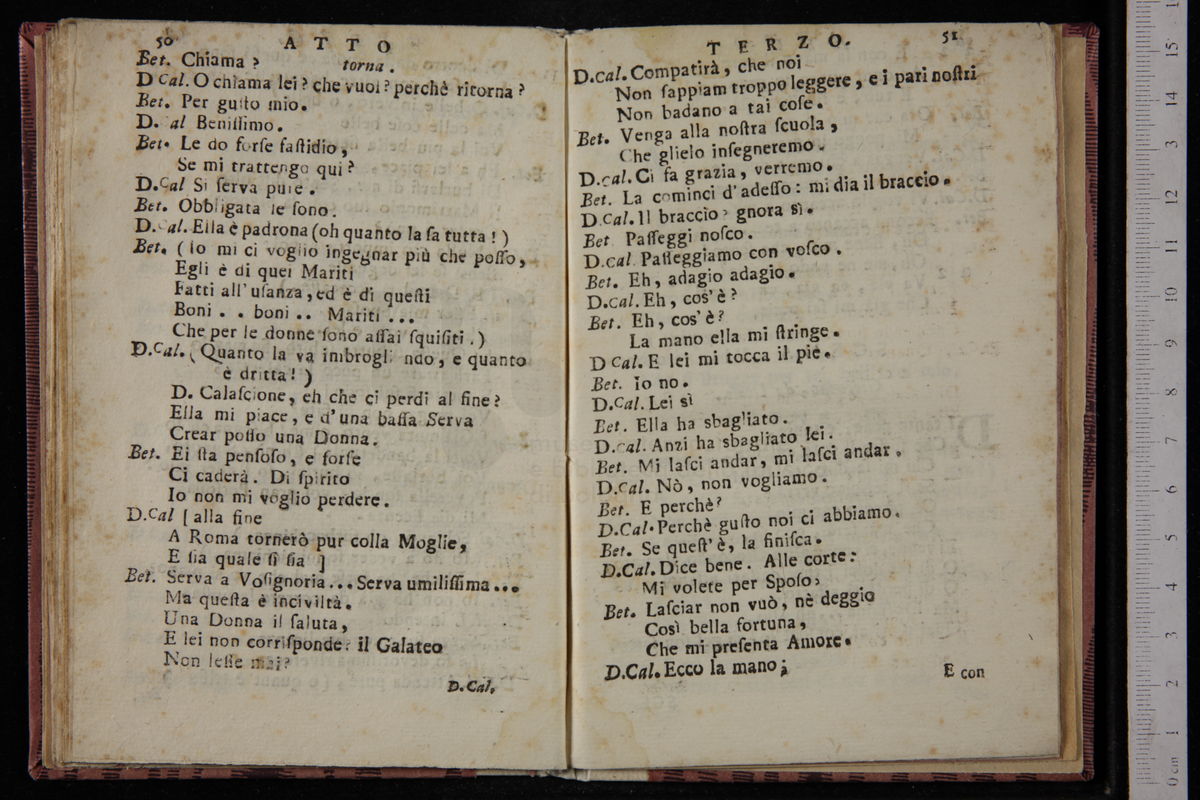 50 ATTO
Bet. Chiama ?
torna.
D Cal. O chiama lei ? che vuoi ? perchè ritorna ?
Bet. Per guſto mio.
D. al Beniſſimo.
Bet. Le do forſe faſtidio,
Se mi trattengo qui ?
D.Cal Si ſerva pure.
Bet. Obbligata le ſono.
D.Cal. Ella è padrona (oh quanto la ſa tutta ! )
Bet. ( Io mi ci voglio ingegnar più che poſſo,
Egli è di quei Mariti
Fatti all' uſanza, ed è di queſti
Boni . . boni .. Mariti ...
Che per le donne ſono aſſai ſquiſiti . )
D.Cal. ( Quanto la va imbrogli ndo, e quanto
è dritta ! )
D. Calaſcione, eh che ci perdi al fine ?
Ella mi piace, e d' una baſſa Serva
Crear poſſo una Donna.
Bet. Ei ſta penſoſo, e forſe
Ci caderà. Di ſpirito
Io non mi voglio perdere.
D.Cal [ alla fine
A Roma tornerò pur colla Moglie,
E ſia quale ſi ſia ]
Bet. Serva a Voſignoria... Serva umiliſſima...
Ma queſta è inciviltà.
Una Donna il ſaluta,
E lei non corriſponde: il Galateo
Non leſſe mai?
D. Cal.
TERZO. 51
D.Cal. Compatirà, che noi
Non ſappiam troppo leggere, e i pari noſtri
Non badano a tai coſe.
Bet. Venga alla noſtra ſcuola,
Che glielo inſegneremo.
D.Cal. Ci fa grazia, verremo.
Bet. La cominci d' adeſſo: mi dia il braccio.
D.Cal. Il braccio, gnora sì.
Bet Paſſeggi noſco.
D.Cal Paſſeggiamo con voſco.
Bet. Eh, adagio adagio.
D.Cal. Eh, cos' è ?
Bet. Eh, cos' è ?
La mano ella mi ſtringe.
D Cal. E lei mi tocca il pie.
Bet. Io no.
D.Cal. Lei sì
Bet. Ella ha sbagliato.
D.Cal. Anzi ha sbagliato lei.
Bet. Mi laſci andar, mi laſci andar.
D.Cal. Nò, non vogliamo.
Bet. E perchè?
D.Cal. Perchè guſto noi ci abbiamo.
Bet. Se queſt' è, la finiſca.
D.Cal. Dice bene. Alle corte:
Mi volete per Spoſo,
Bet. Laſciar non vuò, nè deggio
Così bella fortuna,
Che mi preſenta Amore.
D.Cal. Ecco la mano;
E con